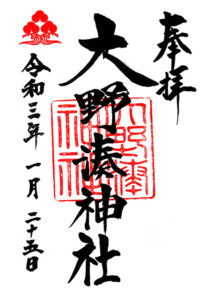 奉拝
大野湊神社
令和三年 一月 二十五日